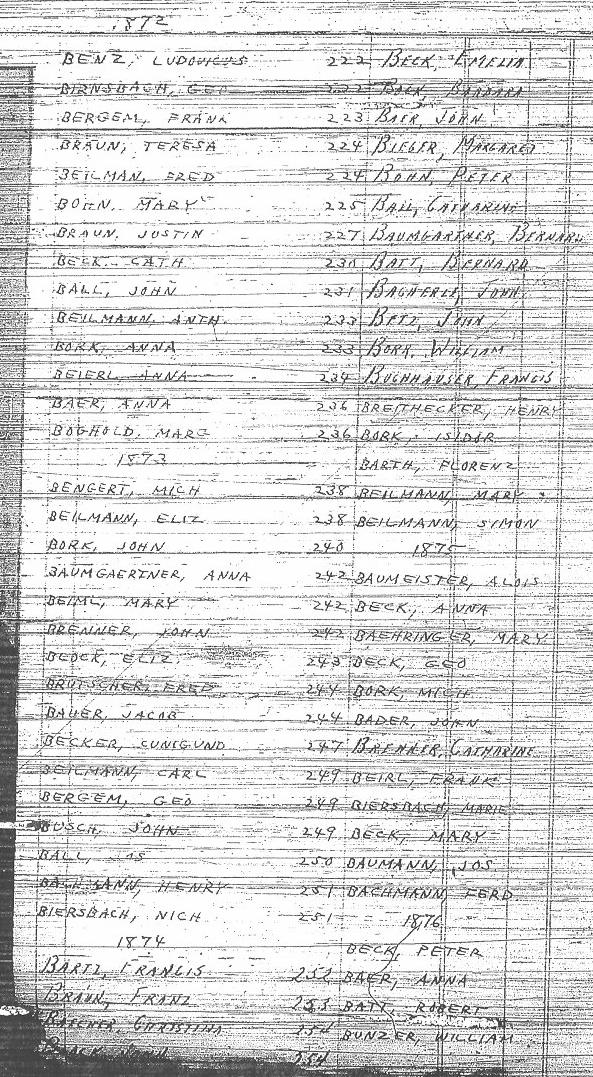 1872
BENZ, LUDOVICUS 222
BIRNSBACH, GEO 222
BERGEM, FRANK 223
BRAUN, TERESA 224
BEILMAN, FRED 224
BOHN, MARY 225
BRAUN, JUSTIN 227
BECK, CATH 230
BALL, JOHN 231
BEILMANN, ANTH. 233
BORK, ANNA 233
BEIERL, ANNA 234
BAER, ANNA 236
BOGHOLD, MARG 236
1873
BENGERT, MICH 238
BEILMANN, ELIZ 238
BORK, JOHN 240
BAUMGAERTNER, ANNA 242
BEIML, MARY 242
BRENNER, JOHN 242
BLOCK, ELIZ. 243
BRUTSCHER, FRED 244
BAUER, JACOB 244
BECKER, CUNIGUND 247
BEILMANN, CARL 249
BERGEM, GEO 249
BUSCH, JOHN 249
BALL, 250
BACHMANN, HENRY 251
BIERSBACH, NICH 251
1874
BARTZ, FRANCIS 252
BRAUN, FRANZ 253
CHRISTINA 254
254
BECK, EMELIA
BACK, BARBARA
BAER, JOHN
BIEGER, MARGARET
BOHN, PETER
BALL, CATHARINE
BAUMGARTNER, BERNARD
BATT, BERNARD
BAGHERLE, JOHN
BETZ, JOHN
BORK, WILLIAM
BUGHHAUSER, FRANCIS
BREITHECKER, HENRY
BORK, ISIDOR
BARTH, FLORENZ
BEILMANN, MARY
BEILMANN, SIMON
1875
BAUMEISTER, ALOIS
BECK, ANNA
BAEHRINGER, MARY
BECK, GEO
BORK, MICH.
BADER, JOHN
BRENNER, CATHARINE
BEIRL, FRANK
BIERSBACH, MARIE
BECK, MARY
BAUMANN, JOS.
BACHMANN, FERD.
1876
BECK, PETER
BAER, ANNA
BATT, ROBERT
BUNZER, WILLIAM